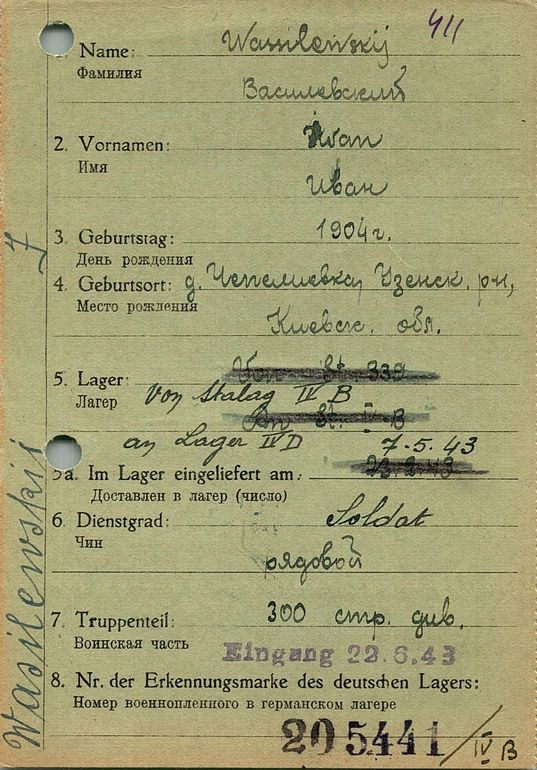 411
1. Name: Wassilewskij
Фамилия
Василевский
2. Vornamen: Iwan
Имя
Иван
3. Geburtstag: 1904 г.
День рождения
4. Geburtsort: д. Чепелиевка, Узенск. р-н,
Место рождения
Киевск. обл.
Von St. 339
5. Lager: Von Stalag IV B
Лагер
An St. IV-B
an Lager IV D 7.5.43
5a. Im Lager eingeliefert am:
Доставлен в лагер (число)
6. Dienstgrad: Soldat
Чин
рядовой
7. Truppenteil: 300 стр. див.
Воинская часть
Eingang 22.6.43
8. Nr. der Erkennungsmarke des deutschen Lagers:
Номер военнопленного в германском лагере
205441/IV B
Wasilewskij 7